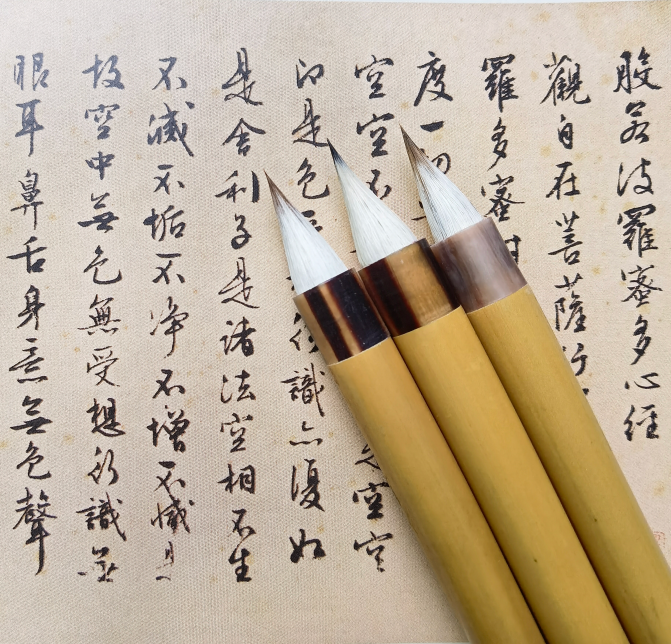 般若波羅蜜多心經
觀自在菩薩行
羅多蜜時
度一切
空空不是空空
即是色行識亦復如
是舍利子是諸法空相不生
不滅不垢不净不增不減是
故空中無色無受想行識無
眼耳鼻舌身意無色聲